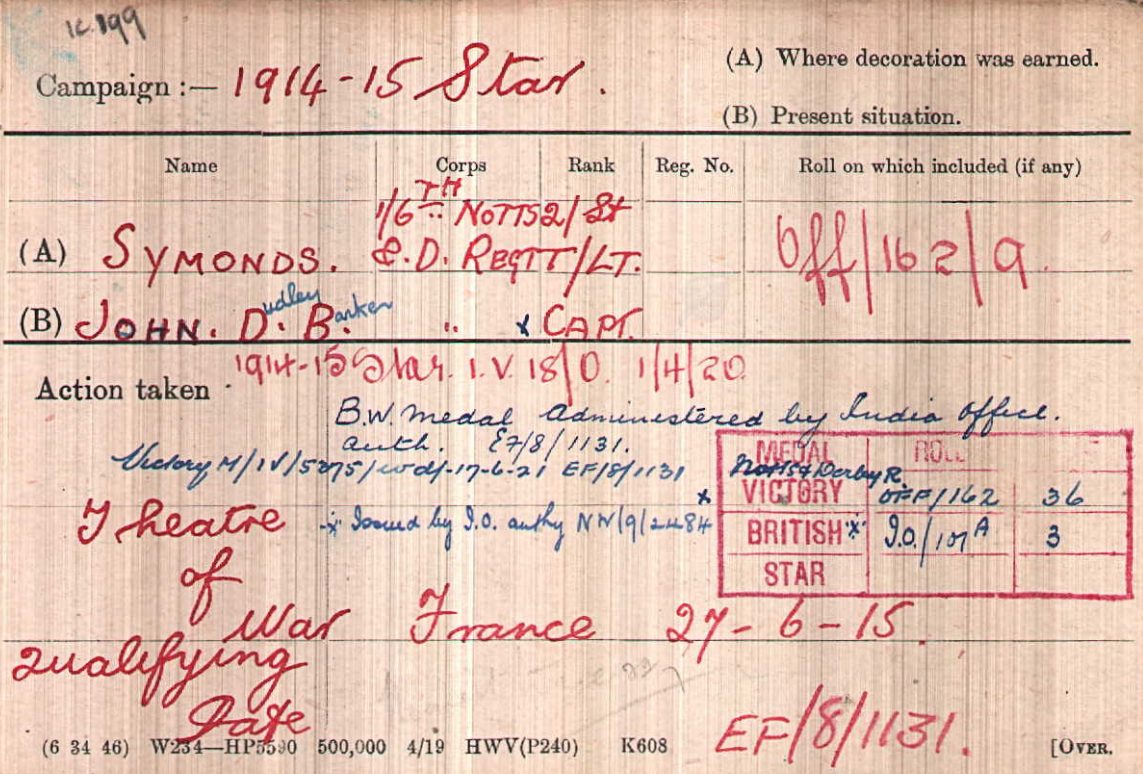 1c.199
Campaign :— 1914-15 Star.
(A) Where decoration was earned.
(B) Present situation.
Name Corps Rank Reg. No. Roll on which included (if any)
1/6TH NOTTS 2/Lt
(A) SYMONDS. & D. REGTT/LT. Off/162/9.
(B) JOHN. Dudley Barker. " x CAPT.
Action taken 1914-15 Star. I.V. 18/0. 1/4/20
B.W. medal administered by India Office.
auth. E7/8/1131.
Victory M/IV/5875/ 17-6-21 EF/8/1131
MEDAL ROLL
Notts & Derby R.
x VICTORY OFF/162 36
Theatre x Issued by I.O. authy NW/9/2484 BRITISH x I.O./107A 3
STAR
of
War France 27-6-15.
Qualifying
Date
EF/8/1131.
(6 34 46) W234—HP5590 500,000 4/19 HWV(P240) K608 [OVER.